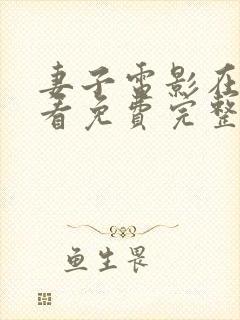 妻子电影在
看免费完整
鱼生畏